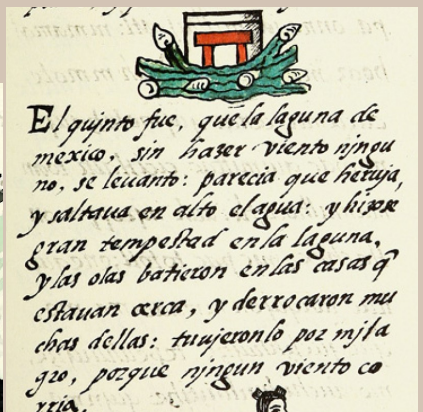 El qujnto fue, que la laguna de
mexico, sin hazer viento njngu
no, se leuanto: parecia que heruja,
y saltaua en alto el agua: y hizose
gran tempestad en la laguna,
y las olas batieron en las casas q̃
estauan cerca, y derrocaron mu
chas dellas: tuujeronlo por mjla
gro, porque njngun viento co
rria.